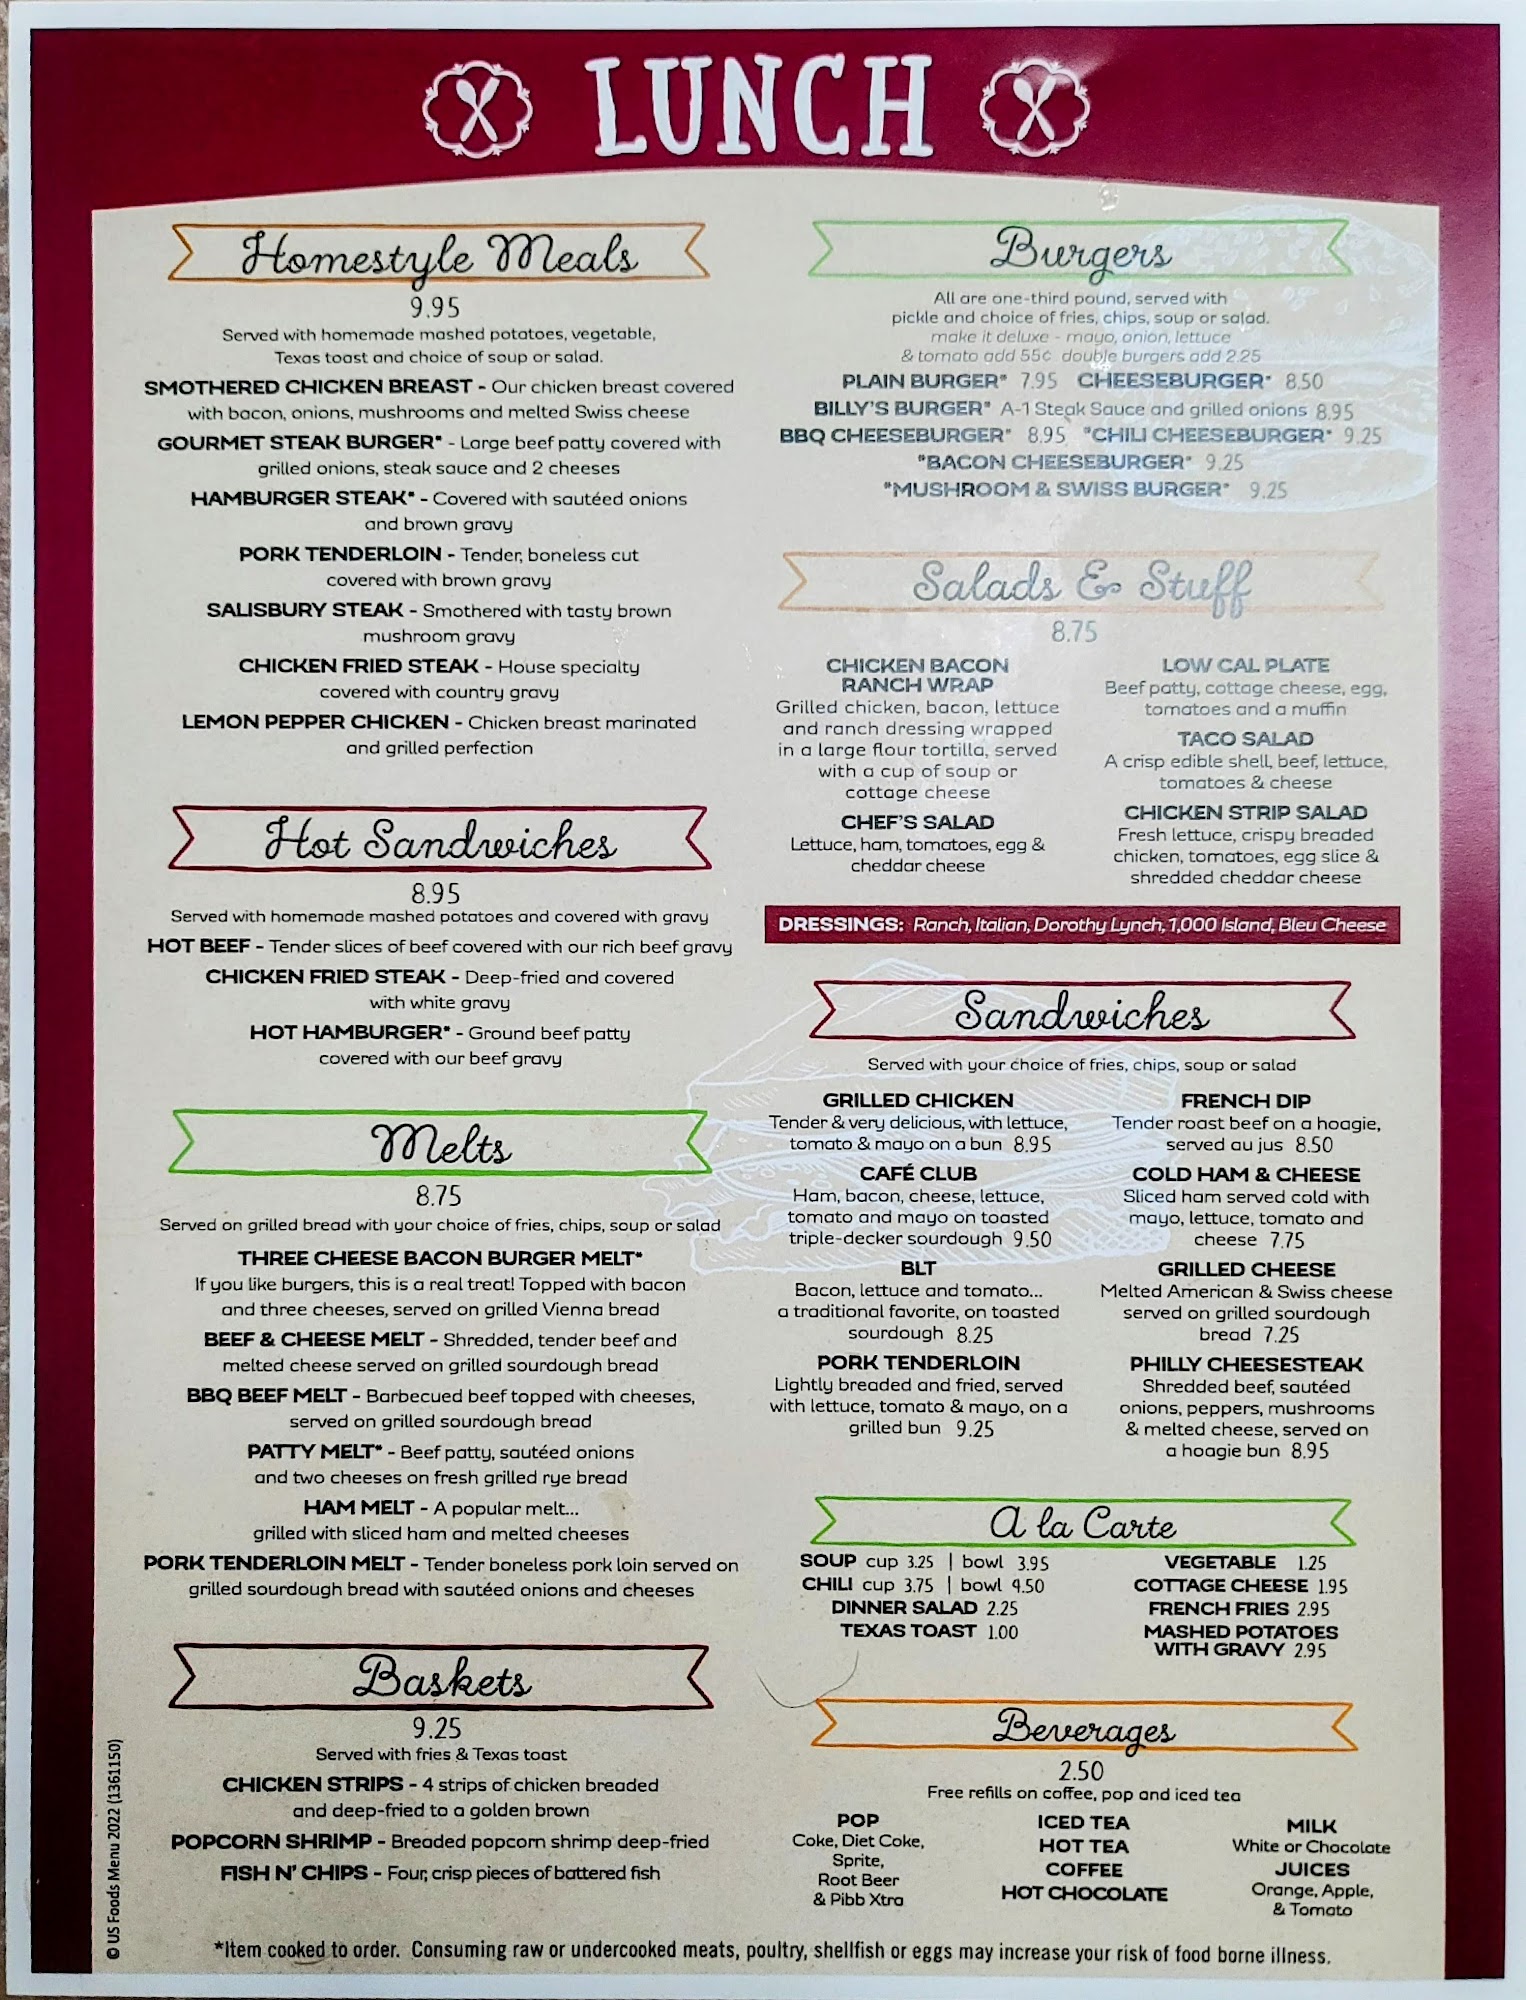 LUNCH
Homestyle Meals
9.95
Served with homemade mashed potatoes, vegetable,
Texas toast and choice of soup or salad.
SMOTHERED CHICKEN BREAST - Our chicken breast covered
with bacon, onions, mushrooms and melted Swiss cheese
GOURMET STEAK BURGER* - Large beef patty covered with
grilled onions, steak sauce and 2 cheeses
HAMBURGER STEAK* - Covered with sautéed onions
and brown gravy
PORK TENDERLOIN - Tender, boneless cut
covered with brown gravy
SALISBURY STEAK - Smothered with tasty brown
mushroom gravy
CHICKEN FRIED STEAK - House specialty
covered with country gravy
LEMON PEPPER CHICKEN - Chicken breast marinated
and grilled perfection
Hot Sandwiches
8.95
Served with homemade mashed potatoes and covered with gravy
HOT BEEF - Tender slices of beef covered with our rich beef gravy
CHICKEN FRIED STEAK - Deep-fried and covered
with white gravy
HOT HAMBURGER* - Ground beef patty
covered with our beef gravy
Melts
8.75
Served on grilled bread with your choice of fries, chips, soup or salad
THREE CHEESE BACON BURGER MELT*
If you like burgers, this is a real treat! Topped with bacon
and three cheeses, served on grilled Vienna bread
BEEF & CHEESE MELT - Shredded, tender beef and
melted cheese served on grilled sourdough bread
BBQ BEEF MELT - Barbecued beef topped with cheeses,
served on grilled sourdough bread
PATTY MELT* - Beef patty, sautéed onions
and two cheeses on fresh grilled rye bread
HAM MELT - A popular melt...
grilled with sliced ham and melted cheeses
PORK TENDERLOIN MELT - Tender boneless pork loin served on
grilled sourdough bread with sautéed onions and cheeses
Baskets
9.25
Served with fries & Texas toast
CHICKEN STRIPS - 4 strips of chicken breaded
and deep-fried to a golden brown
POPCORN SHRIMP - Breaded popcorn shrimp deep-fried
FISH N' CHIPS - Four, crisp pieces of battered fish
Burgers
All are one-third pound, served with
pickle and choice of fries, chips, soup or salad.
make it deluxe - mayo, onion, lettuce
& tomato add 55¢ double burgers add 2.25
PLAIN BURGER* 7.95 CHEESEBURGER* 8.50
BILLY'S BURGER* A-1 Steak Sauce and grilled onions 8.95
BBQ CHEESEBURGER* 8.95 *CHILI CHEESEBURGER* 9.25
*BACON CHEESEBURGER* 9.25
*MUSHROOM & SWISS BURGER* 9.25
Salads & Stuff
8.75
CHICKEN BACON
RANCH WRAP
Grilled chicken, bacon, lettuce
and ranch dressing wrapped
in a large flour tortilla, served
with a cup of soup or
cottage cheese
CHEF'S SALAD
Lettuce, ham, tomatoes, egg &
cheddar cheese
LOW CAL PLATE
Beef patty, cottage cheese, egg,
tomatoes and a muffin
TACO SALAD
A crisp edible shell, beef, lettuce,
tomatoes & cheese
CHICKEN STRIP SALAD
Fresh lettuce, crispy breaded
chicken, tomatoes, egg slice &
shredded cheddar cheese
DRESSINGS: Ranch, Italian, Dorothy Lynch, 1,000 Island, Bleu Cheese
Sandwiches
Served with your choice of fries, chips, soup or salad
GRILLED CHICKEN
Tender & very delicious, with lettuce,
tomato & mayo on a bun 8.95
CAFÉ CLUB
Ham, bacon, cheese, lettuce,
tomato and mayo on toasted
triple-decker sourdough 9.50
BLT
Bacon, lettuce and tomato...
a traditional favorite, on toasted
sourdough 8.25
PORK TENDERLOIN
Lightly breaded and fried, served
with lettuce, tomato & mayo, on a
grilled bun 9.25
FRENCH DIP
Tender roast beef on a hoagie,
served au jus 8.50
COLD HAM & CHEESE
Sliced ham served cold with
mayo, lettuce, tomato and
cheese 7.75
GRILLED CHEESE
Melted American & Swiss cheese
served on grilled sourdough
bread 7.25
PHILLY CHEESESTEAK
Shredded beef, sautéed
onions, peppers, mushrooms
& melted cheese, served on
a hoagie bun 8.95
A la Carte
SOUP cup 3.25 | bowl 3.95
CHILI cup 3.75 | bowl 4.50
DINNER SALAD 2.25
TEXAS TOAST 1.00
VEGETABLE 1.25
COTTAGE CHEESE 1.95
FRENCH FRIES 2.95
MASHED POTATOES
WITH GRAVY 2.95
Beverages
2.50
Free refills on coffee, pop and iced tea
POP
Coke, Diet Coke,
Sprite,
Root Beer
& Pibb Xtra
ICED TEA
HOT TEA
COFFEE
HOT CHOCOLATE
MILK
White or Chocolate
JUICES
Orange, Apple,
& Tomato
© US Foods Menu 2022 (1361150)
*Item cooked to order. Consuming raw or undercooked meats, poultry, shellfish or eggs may increase your risk of food borne illness.